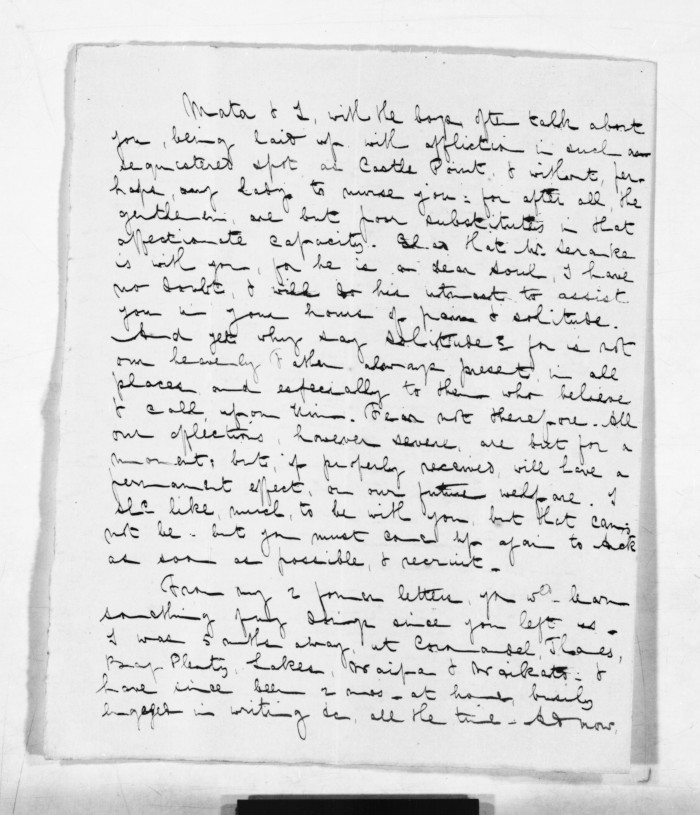 Mata & I, with the boys often talk about
you, being laid up with affliction in such a
sequestered spot as Castle Point, & without, per-
haps, any lady to nurse you - for after all, the
gentlemen, are but poor substitutes in that
affectionate capacity. Glad that Mr.
is with you, for he is a dear soul, I have
no doubt, & will do his utmost to assist
you in your hours of pain & solitude.
And yet why say solitude? for is not
our heavenly Father always present, in all
places, and especially to them who believe
& call upon Him. Fear not therefore. All
our afflictions, however severe, are but for a
moment, but, if properly received, will have a
permanent effect, on our future welfare. I
shd. like, much, to be with you, but that can
not be - but you must come up again to Auck
as soon as possible, & recruit -
From my 2 former letters, you wd. learn
something of my doings since you left us -
I was 5 mths away, at Coromandel, Thames,
Bay Plenty, Lakes, Waipa & Waikato - &
have since been 2 mos - at home, busily
engaged in writing &c, all the time - And now,